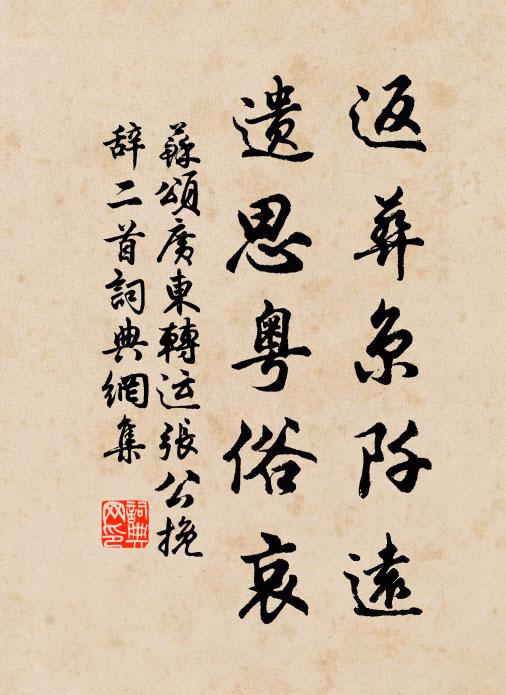 返葬京阡遠
遺思粵俗哀
蘇頌廣東轉运張公挽
辭二首詞典網集
詞典网印